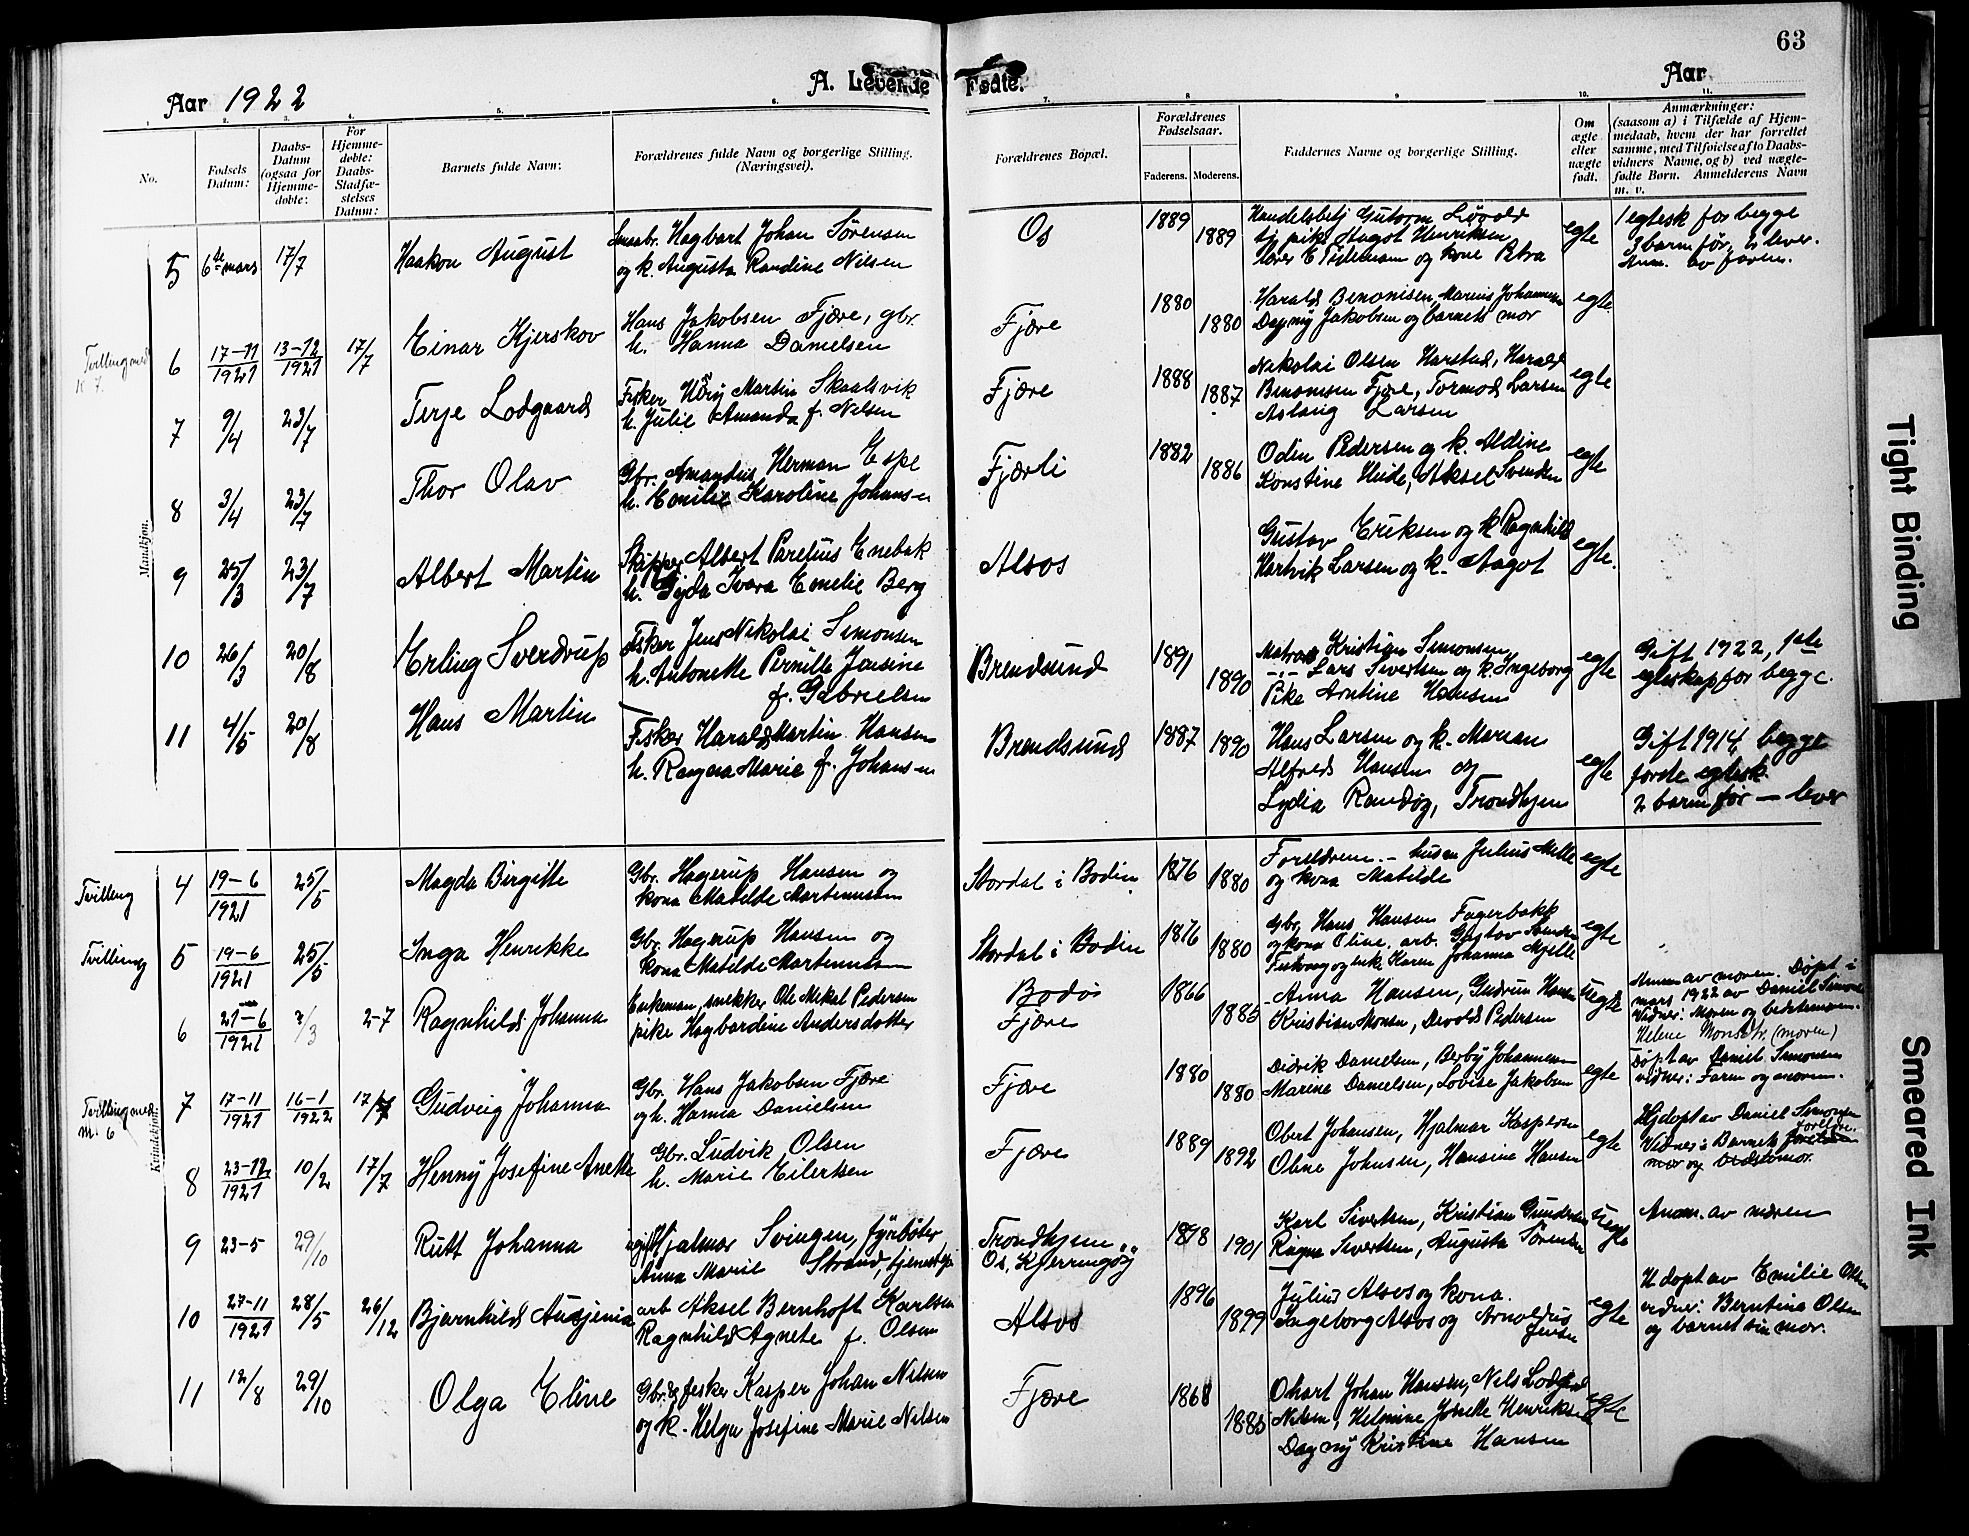 63
Aar 1922
A. Levende Fødte.
Aar
1. 2. 3. 4. 5. 6. 7. 8 9 10. 11.
No.
Fødsels Datum:
Daabs-Datum (ogsaa for Hjemme-døbte:
For Hjemme-døbte: Daabs-Stadfæ-stelses Datum:
Barnets fulde Navn:
Forældrenes fulde Navn og borgerlige Stilling. (Næringsvei).
Forældrenes Bopæl.
Forældrenes Fødselsaar.
Faderens. Moderens.
Faddernes Navne og borgerlige Stilling.
Om ægte eller uægte født.
Anmærkninger: (saasom a) i Tilfælde af Hjem-medaab, hvem der har forrettet samme, med Tilføielse af to Daabs-vidners Navne, og b) ved uægte-fødte Børn. Anmelderens Navn m. v.
Mandkjøn.
5 6te mars 17/7 Haakon August
Smaabr. Hagbart Johan Sørensen
og k. Augusta Randine Nilsen
Os 1889 1889
Handelsbetj Gutorm
tj pike Aagot Henriksen
og kone Petra
egte
1 egtesk for begge
3 barn før, 2 lever.
Anm. av faren.
Tvilling med
K 7.
6 17-11/1921 13-12/1921 17/7 Einar Kjerskov
Hans Jakobsen Fjære, gbr.
h. Hanna Danielsen
Fjære 1880 1880
Harald Benonisen, Marius Johannesen
Dagny Jakobsen og barnets mor
egte
7 9/4 23/7 Terje Lodgaard
Fisker Martin Skaalsvik
h. Julie Amanda f. Nilsen
Fjære 1888 1887
Nikolai Olsen Harstad, Harald
Benonisen Fjære, Tormod Larsen
Aslaug Larsen
egte
8 3/4 23/7 Thor Olav
Gbr. Amandus Herman Espe
h. Emilie Karoline Johans-n
Fjærli 1882 1886
Odin Pedersen og k. Aldine
Konstine Heide, Aksel Svendsen
egte
9 25/3 23/7 Albert Martin
Skipper Albert Parelius Enebak
h. Gyda Ivara Emelie Berg
Alsos
Gustav Eriksen og k Ragnhild
Hartvik Larsen og k. Aagot
egte.
10 26/3 20/8 Erling Sverdrup
Fisker Jens Nikolai Simonsen
h. Antonette Pernille Jensine
f. Gabrielsen
Brendsund 1891 1890
Matros Kristian Simonsen,
-"- Lars Sivertsen og k. Ingeborg
Pike Arntine Hansen
egte
Gift 1922, 1ste
egteskap for begge.
11 4/5 20/8 Hans Martin
Fisker Harald Martin Hansen
h. Ragna Marie f. Johans-n
Brendsund 1887 1890
Hans Larsen og k. Marian
Alfred Hansen og
Lydia Randøy, Trondhjem
egte
Gift 1914, begge
første egtesk.
2 barn før — lever
Kvindekjøn.
Tvilling 4 19-6/1921 25/5 Magda Birgitte
Gbr. Hagerup Hansen og
kona Matilde Martenussen
Stordal i Bodin 1876 1880
Foreldrene. - husm Julius
og kona Matilde
egte
Tvilling 5 19-6/1921 25/5 Inga Henrikke
Gbr. Hagerup Hansen og
kona Matilde Martenussen
Stordal i Bodin 1876 1880
Gbr. Hans Hansen Fagerbakk
og kona Oline. arb. Gustav
og enke Karen Johanna Mjelle
egte
6 21-6/1921 2/3 2-7 Ragnhild Johanna
Enkeman, snekker Ole Mikal Pedersen
pike Hagbardine Andersdatter
Bodø
Fjære 1866 1885
Anna Hansen, Gudrun Hansen
Kristian Monsen, Devold Pedersen
Uegte
Anm av moren. Døpt i
mars 1922 av Daniel Simons
Vidner: Moren og bedstemoren.
Helene Monsdtr. (moren)
Tvilling med
M. 6
7 17-11/1921 16-1/1922 17/7 Gudveig Johanna
Gbr. Hans Jakobsen Fjære
og h. Hanna Danielsen
Fjære 1880 1880
Didrik Danielsen, Berby Johannesen
Marene Danielsen, Lovise Jakobsen
egte
Døpt av Daniel Simonsen
vidner: Faren og moren.
8 23-12/1921 10/2 17/7 Henny Josefine Anette
Gbr. Ludvik Olsen
h. Marie Eilertsen
Fjære 1889 1892
Obert Johansen, Hjalmar Kaspersen
Oline Johnsen, Hansine Hansen
egte
Hjdøpt av Daniel Simonsen
Vidner: Barnets foreldre.
9 23-5 29/10 Rutt Johanna
ugift Hjalmar Svingen, fyrbøter
Anna Marie Strand, tjenestepi
Trondhjem
Os, Kjerringøy 1898 1901
Karl Sivertsen, Kristian Gundersen
Ragna Sivertsen, Augusta Sørensen
Uegte
Anm. av moren
10 27-11/1921 28/5 26/12 Bjarnhild Ausjenia
arb Aksel Bernhoft Karlsen
Ragnhild Agnete f. Olsen
Alsos 1896 1899
Julius Alsos og kona.
Ingeborg Alsos og Arnoldus
Jensen
egte
H døpt av Emilie Olsen
vidner: Berntina Olsen
og barnet sin mor.
11 12/8 29/10 Olga Eline
Gbr. & fisker Kasper Johan Nilsen
og k. Helga Josefine Marie Nilsen
Fjære 1868 1885
Ohart Johan Hansen, Nils Lodgard
Nilsen, Helmine Josette Henriksen
Dagny Kristine Hansen
egte
Tight Binding
Smeared Ink